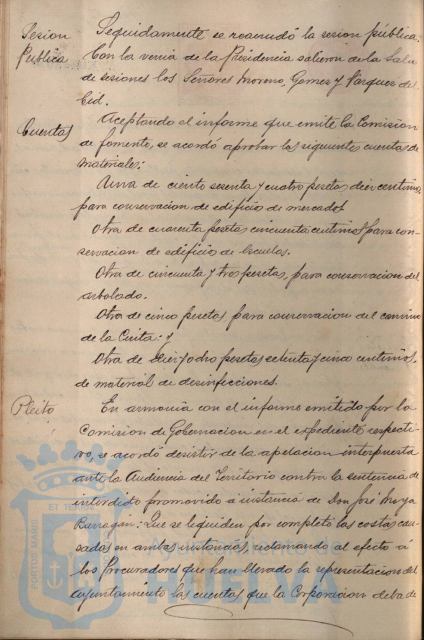 Sesion
Publica
Seguidamente se reanudó la sesion pública.
Con la venia de la Presidencia salieron de la Sala
de sesiones los Señores Moreno, Gomez y Vazquez del
Cid.
Cuentas
Aceptando el informe que emite la Comision
de fomento, se acordó aprobar las siguientes cuentas de
materiales:
Una de ciento sesenta y cuatro pesetas diez centimos
para conservacion de edificio de mercados
Otra de cuarenta pesetas cincuenta centimos para con-
servacion de edificio de Escuelas.
Otra de cincuenta y tres pesetas, para conservacion del
arbolado.
Otra de cinco pesetas para conservacion del camino
de la Cinta: y
Otra de pesetas setenta y cinco centimos,
de material de desinfecciones.
Pleito
En armonia con el informe emitido por la
Comision de Gobernacion en el expediente respecti-
vo, se acordó desistir de la apelacion interpuesta
ante la Audiencia del Territorio contra la sentencia de
interdicto promovido a instancia de Don José Moya
Barragan: Que se liquiden por completo las costas cau-
sadas en ambas instancias, reclamando al efecto á
los Procuradores que han llevado la representacion del
Ayuntamiento las cuentas que la Corporacion deba de
HUELVA
PORTUS MARIS